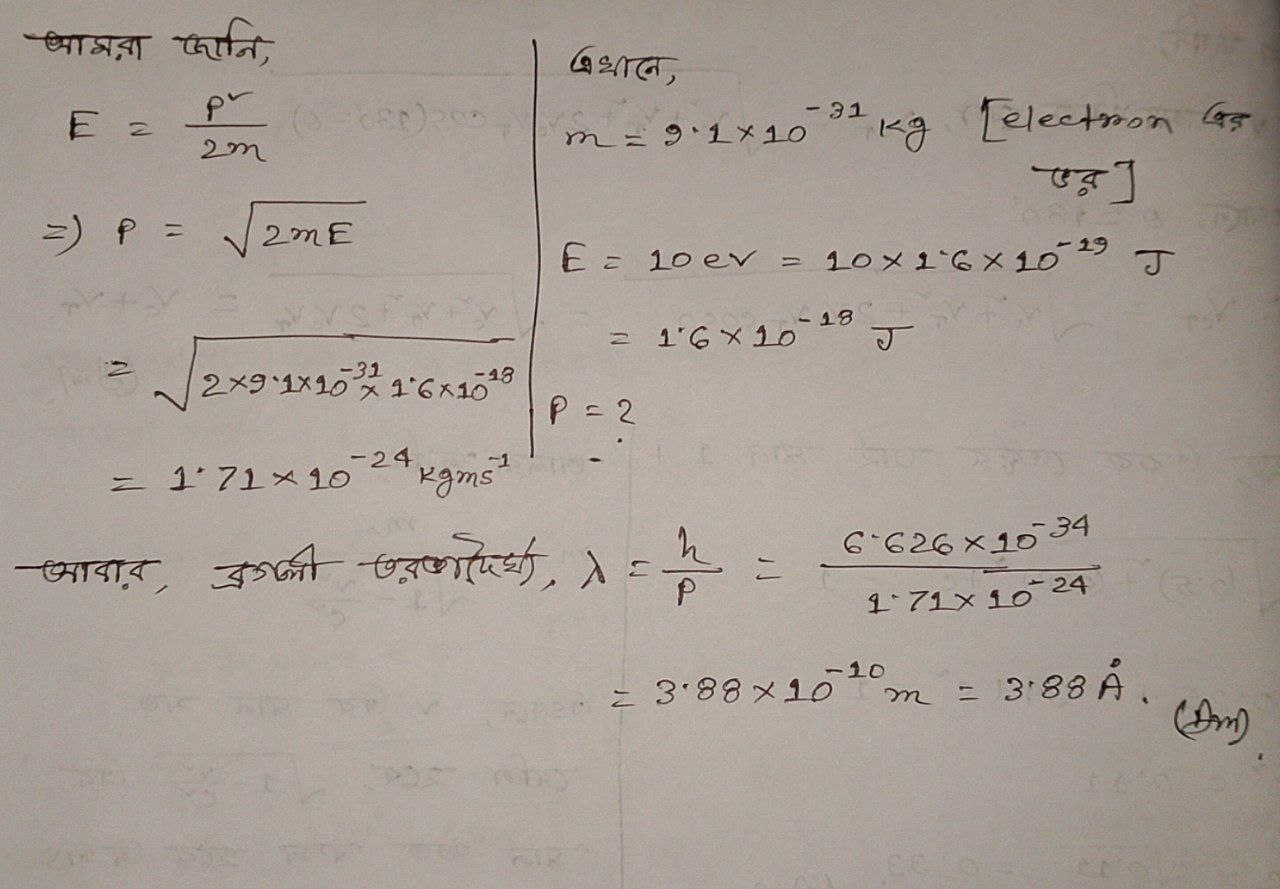 আমরা জানি,
E = p²/2m
=) P = √2mE
= √2×9.1×10⁻³¹×1.6×10⁻¹⁸
= 1.71×10⁻²⁴ kgms⁻¹
এখানে,
m = 9.1×10⁻³¹ kg [electron এর
ভর]
E = 10 ev = 10×1.6×10⁻¹⁹ J
= 1.6×10⁻¹⁸ J
P = ?
আবার, ব্রগলী তরঙ্গদৈর্ঘ্য, λ = h/p = 6.626×10⁻³⁴/1.71×10⁻²⁴
= 3.88×10⁻¹⁰ m = 3.88 Å. (Am)